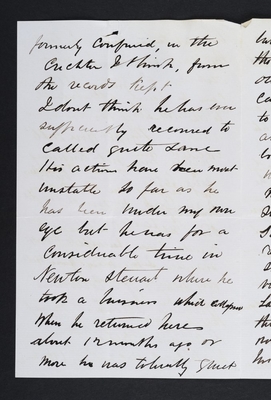 formerly Confined, in the
Crichton I think, from
the records kept
I dont think he has ever
sufficiently recovered to
called quite sane
His actions have been most
unstable so far as he
has been under my own
eye but he was for a
Considerable time in
Newton Stewart where he
took a business which collapsed
When he returned here
about 12 months ago or
more he was tolerably quiet